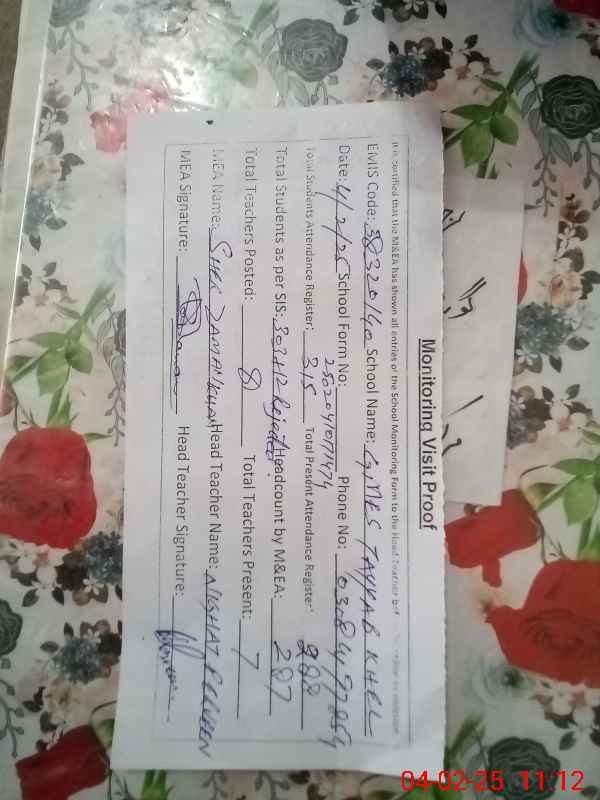 Monitoring Visit Proof
It is certified that the M&EA has shown all entries of the School Monitoring Form to the Head Teacher
EMIS Code: 38320140 School Name: GMES TAYYAB KHEL
Date: 4/2/25 School Form No: 25020410171474 Phone No:
Total Students Attendance Register: 315 Total Present Attendance Register: 288
Total Students as per SIS: 303+12 Rejected Headcount by M&EA: 287
Total Teachers Posted: 8 Total Teachers Present: 7
MEA Name: SHER ZAMAN KHAN Head Teacher Name: NUSHAT PERVEEN
MEA Signature: Head Teacher Signature:
04-02-25 11:12